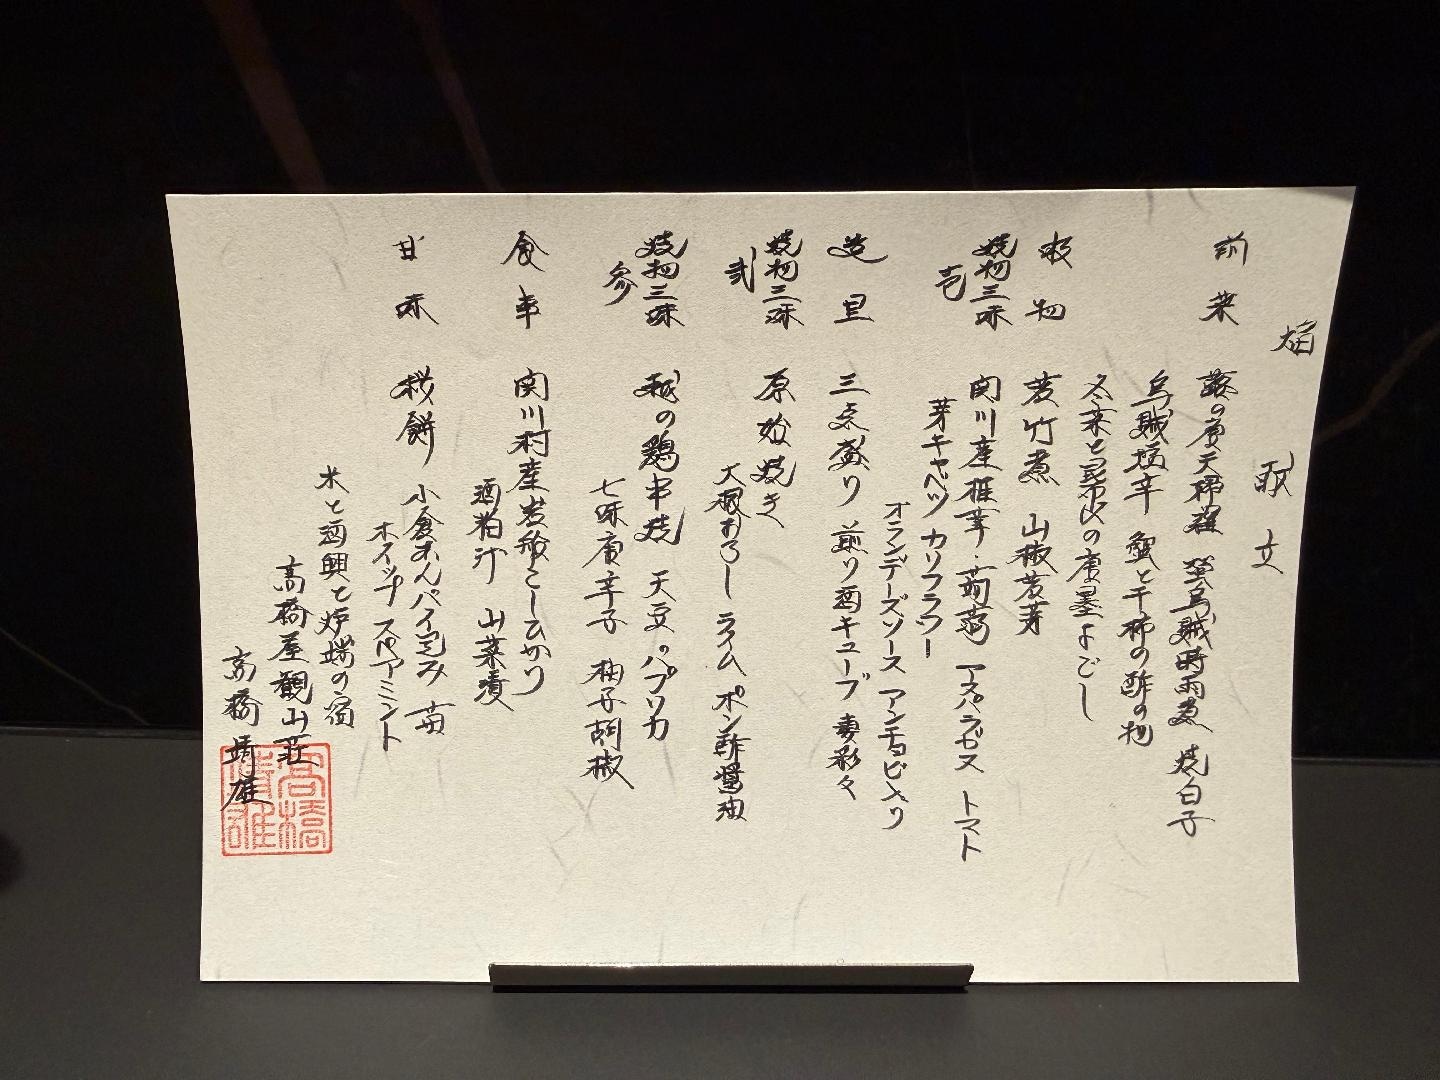 焰
献立
前菜
蕗の唐天稀羅 蛍烏賊時雨煮 焼白子
烏賊塩辛 蟹と干柿の酢の物
冬菜と昆布の唐墨よごし
吸物
若竹煮 山椒若芽
焼物三味
壱
関川産椎茸・蒟蒻 アスパラガス トマト
芽キャベツ カリフラワー
オランデーズソース アンチョビ入り
造里
三点盛り 煎り酒キューブ 妻彩々
焼物三味
弐
原始焼き
大根おろし ライム ポン酢醤油
焼物三味
参
越の鶏串焼 天豆 パプリカ
七味唐辛子 柚子胡椒
食事
関川村産岩船こしひかり
酒粕汁 山菜漬
甘味
桜餅 小倉あんパイ包み 苺
ホイップ スペアミント
米と酒興と炉端の宿
高橋屋観山荘
高橋靖雄
高橋
靖雄